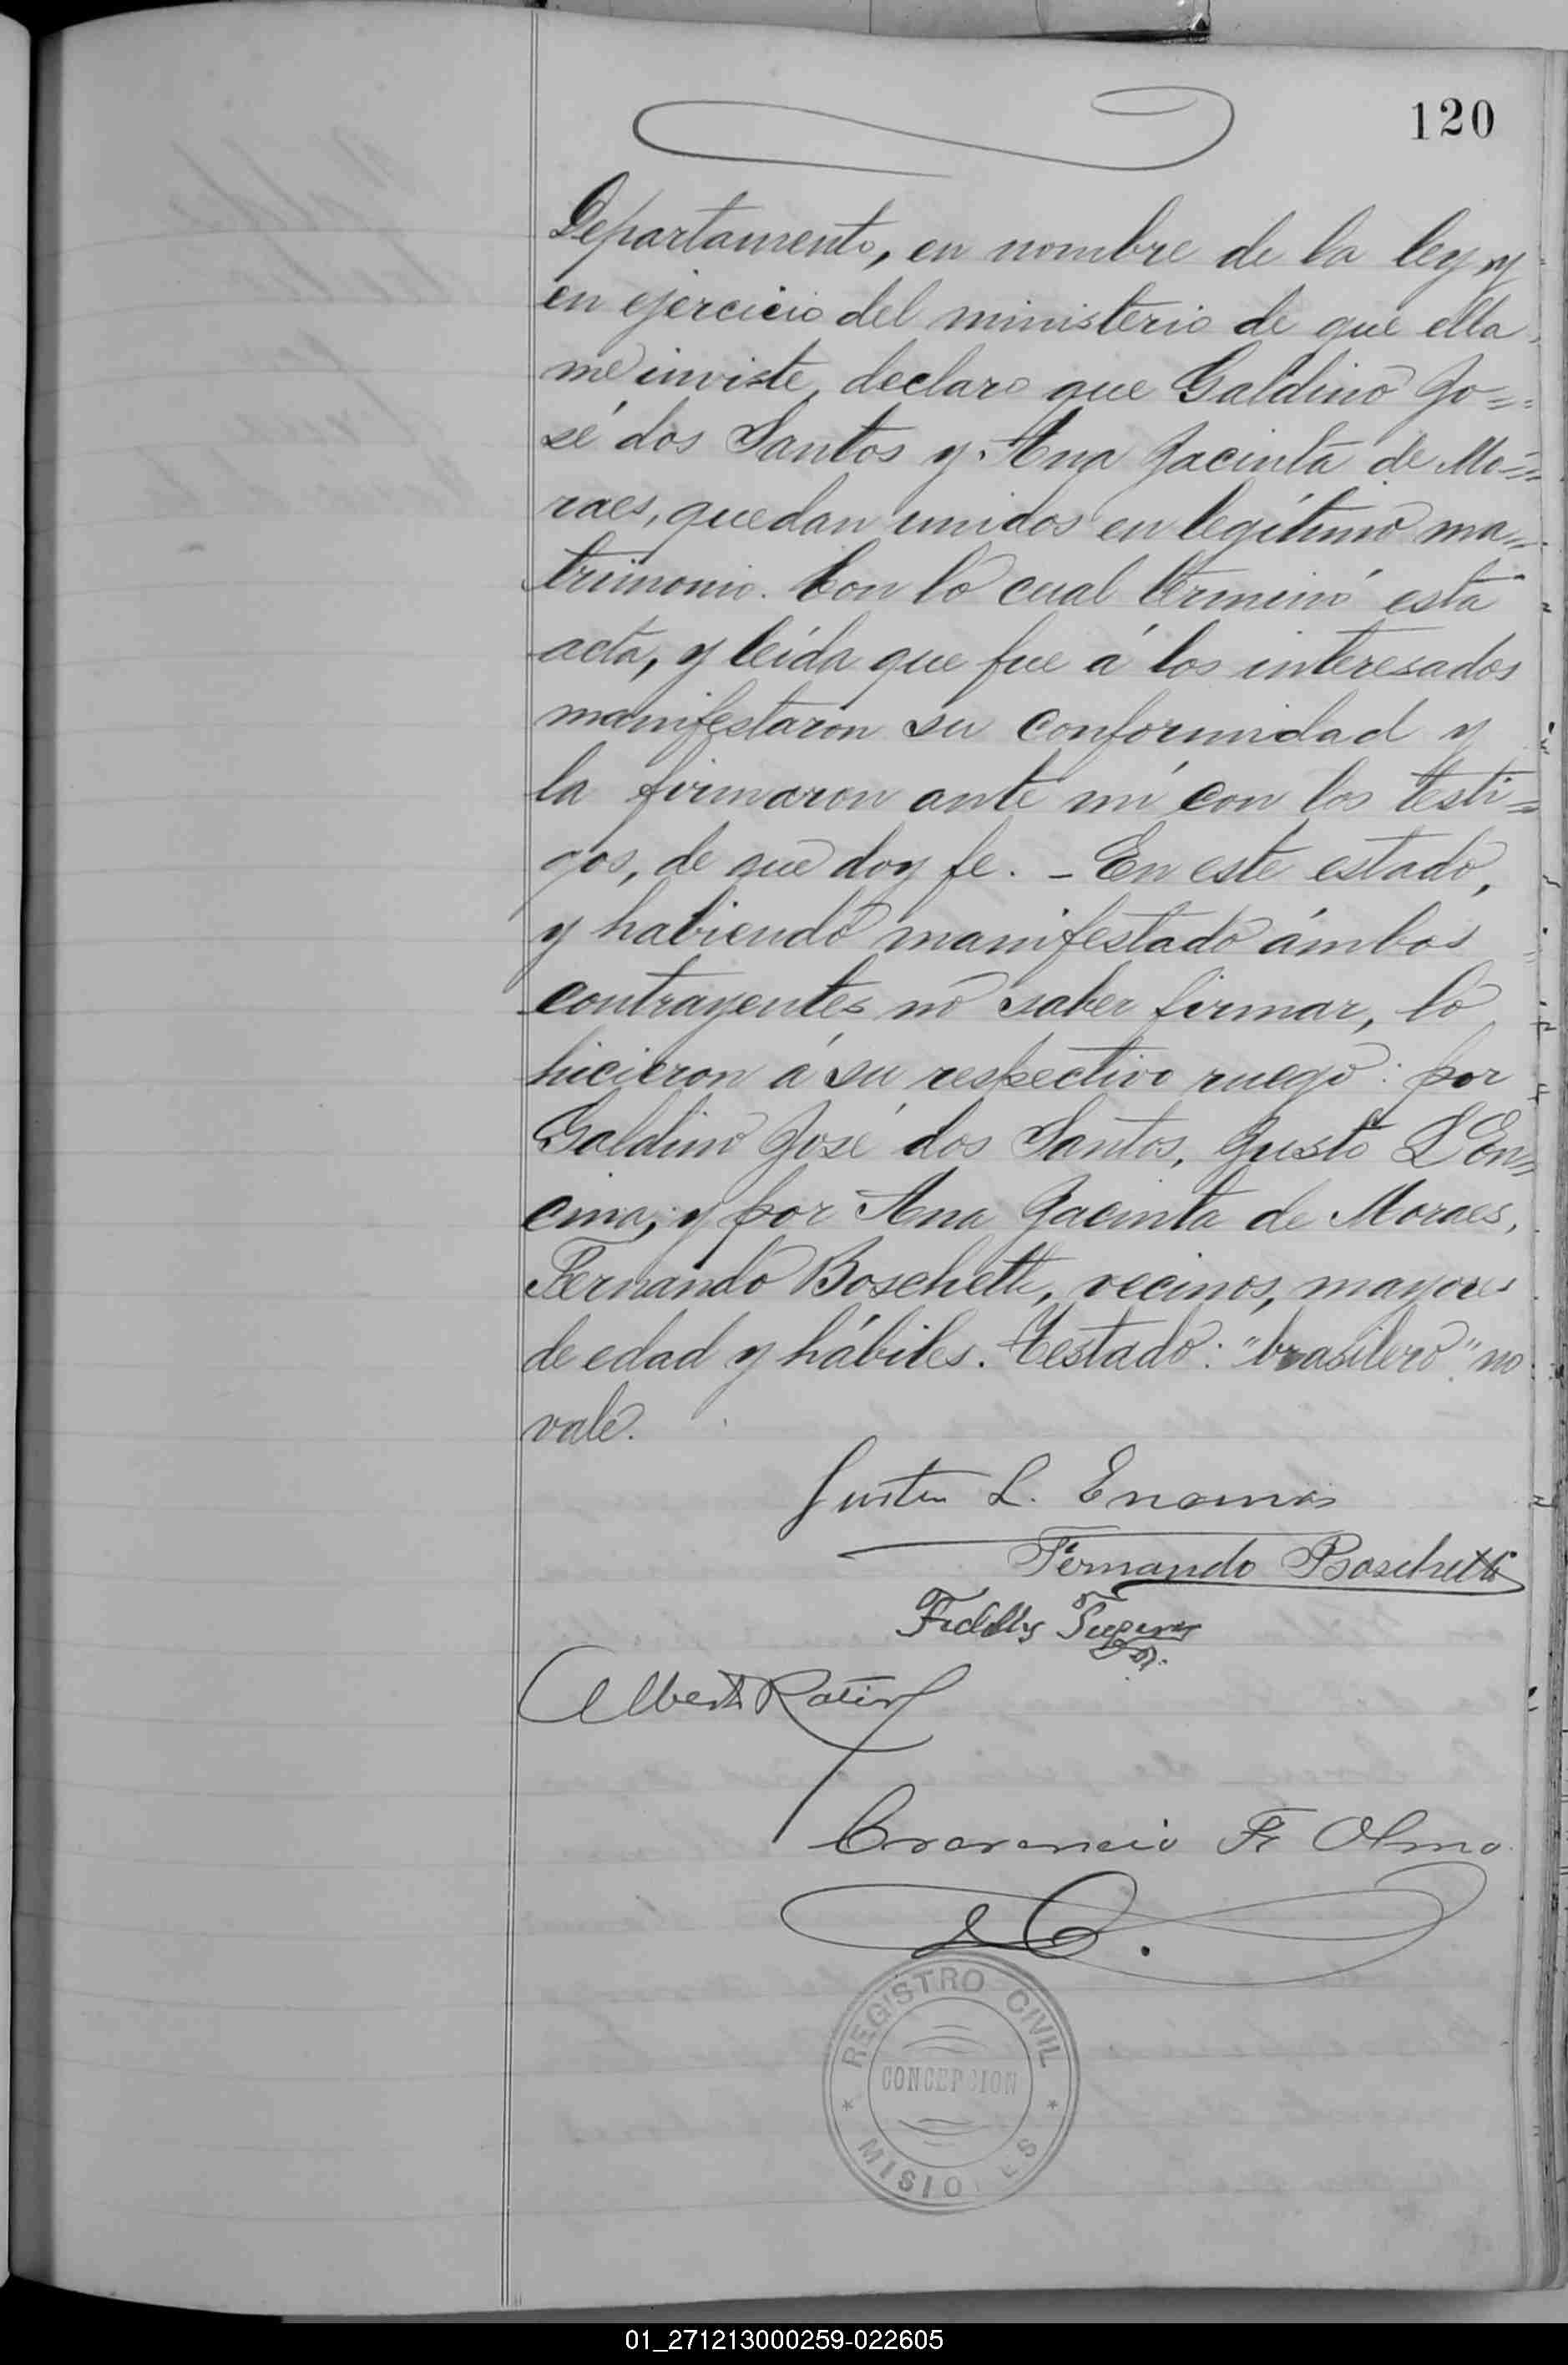 120
Departamento, en nombre de la ley y
en ejercicio del ministerio de que ella
me inviste, declaro que Galdino Jo=
sé dos Santos y Ana Jacinta de Mo=
raes, quedan unidos en legítimo ma=
trimonio. Con lo cual terminó esta
acta, y leída que fue á los interesados
manifestaron su conformidad y
la firmaron ante mí con los testi=
gos, de que doy fe. - En este estado,
y habiendo manifestado ámbos
contrayentes no saber firmar, lo
hicieron á su respectivo ruego: por
Galdino José dos Santos, Justo L. En=
cina, y por Ana Jacinta de Moraes,
Fernando Boschetti, vecinos, mayores
de edad y hábiles. Testado: "brasilero" no
vale.
L.
Fernando Boschetti
Alberto
F. Olmo
REGISTRO CIVIL
CONCEPCION
MISIONES
01_271213000259-022605